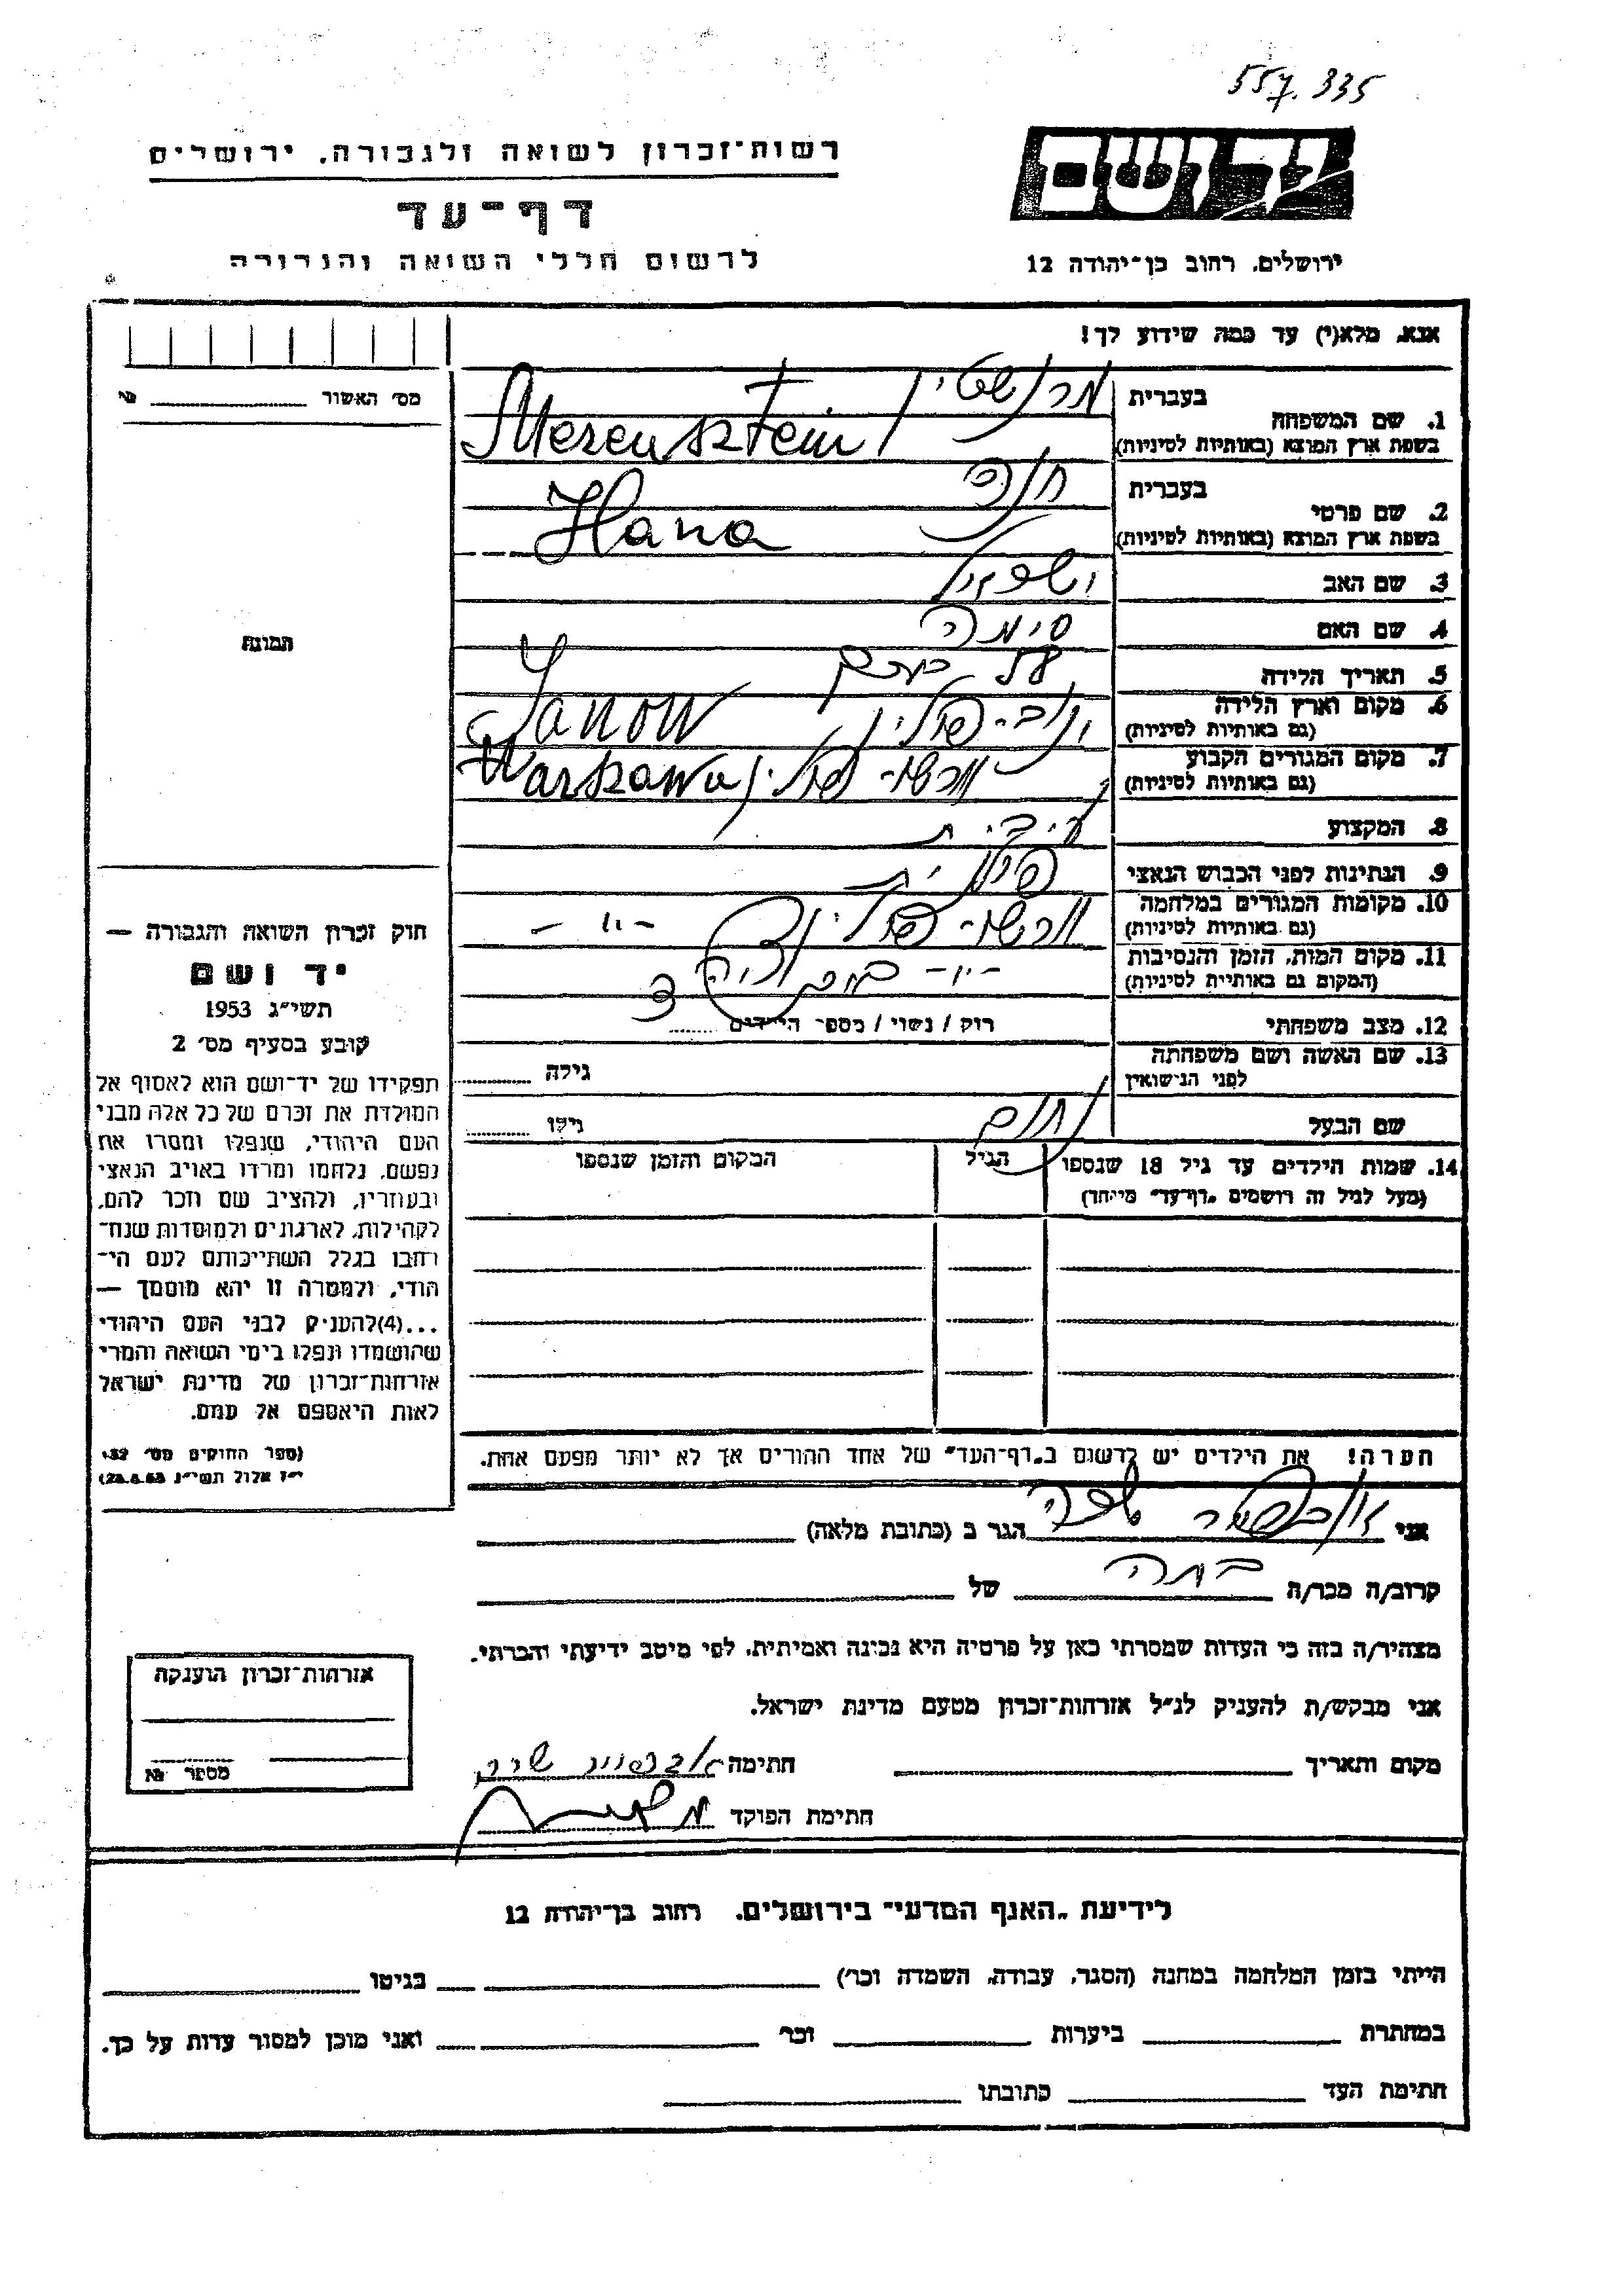 557.335
יד ושם
רשות־זכרון לשואה ולגבורה, ירושלים
דף־עד
לרשום חללי השואה והגבורה
ירושלים, רחוב בן־יהודה 12
אנא, מלא(י) עד כמה שידוע לך!
מס׳ האשור №
1. שם המשפחה
בעברית
מרנשטין
בשפת ארץ המוצא (באותיות לטיניות)
Merensztein
2. שם פרטי
בעברית
חנה
בשפת ארץ המוצא (באותיות לטיניות)
Hana
3. שם האב
4. שם האם
סימה
5. תאריך הלידה
תמונה
6. מקום וארץ הלידה
(גם באותיות לטיניות)
ינוב - פולין Janow
7. מקום המגורים הקבוע
(גם באותיות לטיניות)
ורשה - פולין Warszawa
8. המקצוע
9. הנתינות לפני הכבוש הנאצי
פולנית
10. מקומות המגורים במלחמה
(גם באותיות לטיניות)
ורשה - פולין - װ -
11. מקום המות, הזמן והנסיבות
(המקום גם באותיות לטיניות)
12. מצב משפחתי
רווק / נשוי / מספר הילדים 3
13. שם האשה ושם משפחתה
לפני הנישואין
גילה
שם הבעל
נחום
גילו
14. שמות הילדים עד גיל 18 שנספו
(מעל לגיל זה רושמים „דף־עד״ מייחד)
הגיל
המקום והזמן שנספו
חוק זכרון השואה והגבורה —
יד ושם
תשי״ג 1953
קובע בסעיף מס׳ 2
תפקידו של יד־ושם הוא לאסוף אל
המולדת את זכרם של כל אלה מבני
העם היהודי, שנפלו ומסרו את
נפשם, נלחמו ומרדו באויב הנאצי
ובעוזריו, ולהציב שם וזכר להם,
לקהילות, לארגונים ולמוסדות שנח־
רחבו בגלל השתייכותם לעם הי־
הודי, ולמטרה זו יהא מוסמך —
...(4) להעניק לבני העם היהודי
שהושמדו ונפלו בימי השואה והמרי
אזרחות־זכרון של מדינת ישראל
לאות היאספם אל עמם.
(ספר החוקים מס׳ 132
י״ז אלול תשי״ג 28.8.53)
הערה! את הילדים יש לרשום ב„דף־העד״ של אחד ההורים אך לא יותר מפעם אחת.
אני הגר ב (כתובת מלאה)
קרוב/ה מכר/ה של
מצהיר/ה בזה כי העדות שמסרתי כאן על פרטיה היא נכונה ואמיתית, לפי מיטב ידיעתי והכרתי.
אני מבקש/ת להעניק לנ״ל אזרחות־זכרון מטעם מדינת ישראל.
מקום ותאריך חתימה
חתימת הפוקד
אזרחות־זכרון הוענקה
מספר №
לידיעת „האגף המדעי״ בירושלים, רחוב בן־יהודה 12
הייתי בזמן המלחמה במחנה (הסגר, עבודה, השמדה וכו׳) בגיטו
במחתרת ביערות וכו׳ ואני מוכן למסור עדות על כך.
חתימת העד כתובתו